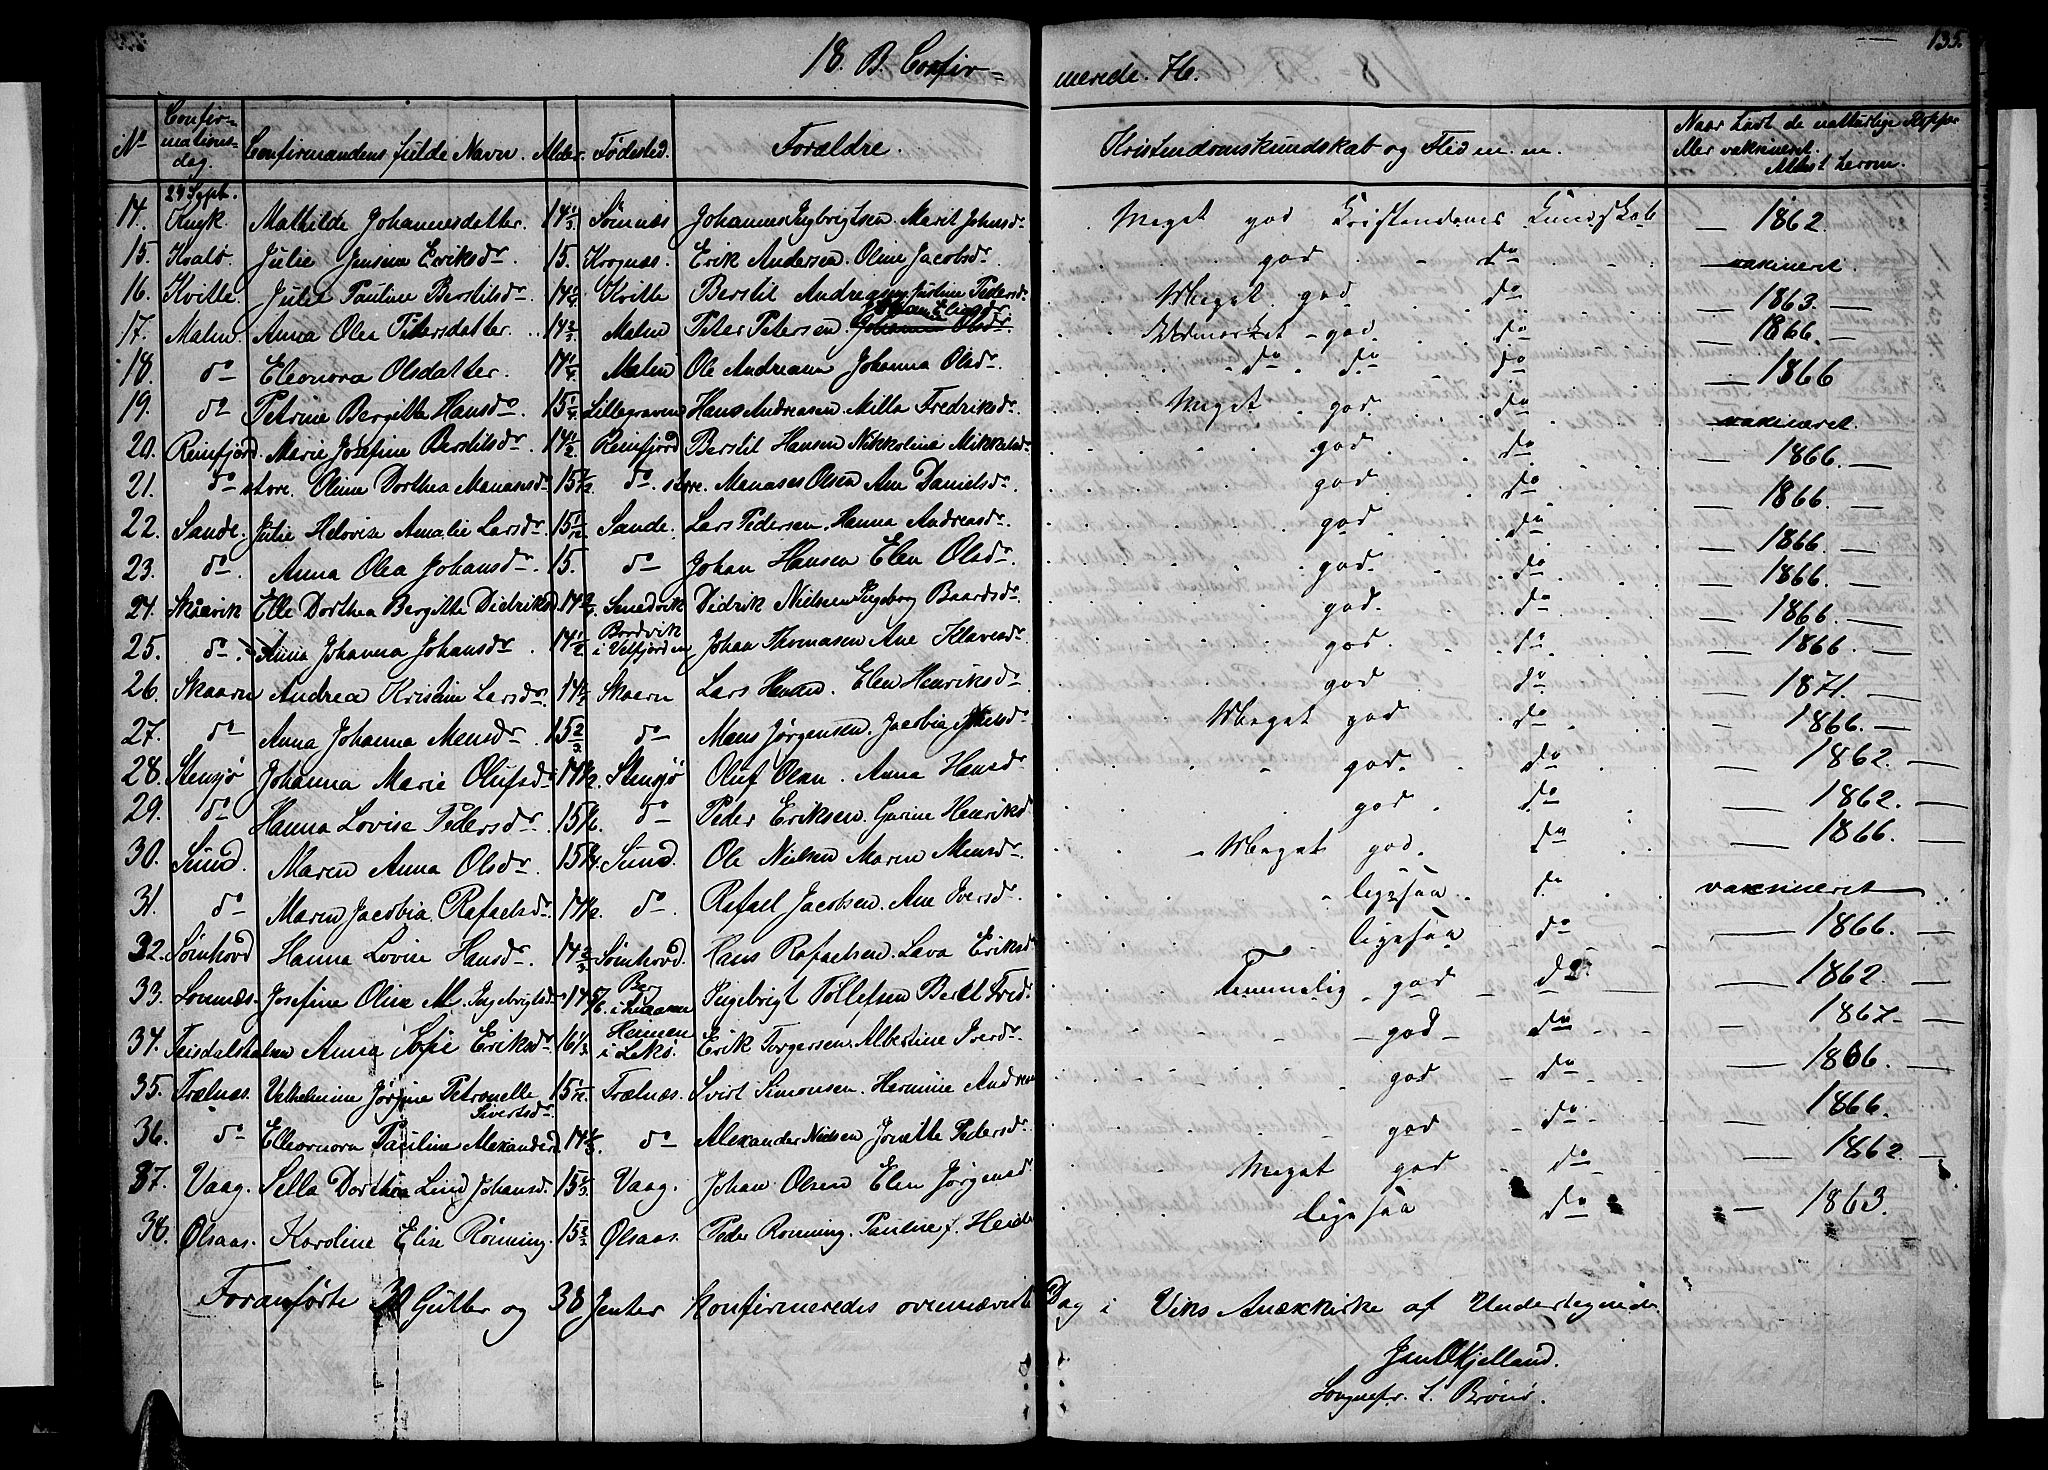 135.
18. B. Confir=
merede. 76.
No
Confir=
mations-
dag.
Confirmandens fulde Navn.
Alder.
Fødested.
Forældre.
Kristendomskundskab og Flid m. m.
Naar havt de naturlige Kopper
eller vaksineret.
Attest herom.
29 Sept.
14. Mathilde Johannesdatter. Sømnæs Johannes Ingbrigtsen. Marit Johnsdr Meget god Kristendoms Kundskab — 1862.
15. Kvalø. Julie Jensine Eriksdr. 15. Krognæs. Erik Andersen. Oline Jacobsdr. god do vaksineret.
16. Kville. Julie Pauline Berstilsdr 14 1/4 Kville Berstil Andreasen. Justine Pedersdr Meget god do — 1863. —
17. Malm. Anna Olea Petersdatter. Malm Peter Petersen. Udmærket god do — 1866. —
18. do Eleonora Olsdatter. 14 1/4 Malm Ole Andreasen Johanna Olsdr do do do — 1866
19. do Petrine Bergitte Hansdr. 15 1/4 Lillegraven Hans Andreasen. Milla Fredriksdr. Meget god do vaksineret.
20. Reinfjord. Marie Josefine Berstilsdr. 14 1/2 Reinfjord Berstil Hansen Nikkoline Mikkelsdr god do — 1866. —
21. do store. Oline Dorthea Manasesdr do store. Manases Olsen Ane Danielsdr. god do — 1866. —
22. Sande. Julie Helovise Amalie Larsdr 15 1/12 Sande. Lars Pedersen. Hanna Andreasdr. god do — 1866. —
23. do. Anna Olea Johansdr. 15. do Johan Hansen Elen Olsdr. god. do — 1866. —
24. Skaarvik Elle Dorthea Bergitte Didriksd Didrik Nielsen Ingeborg Baardsdr. god. do — 1866. —
25. do. Anna Johanna Johansdr. 14 1/2 Bordvik i Velfjorden Johan Thomasen Ane god. do — 1866. —
26. Skaarn Andrea Kristine Larsdr. 14 1/2 Skaarn Lars Hansen. Elen Henriksdr god do — 1871. —
27. do Anna Johanna Mensdr. 15 2/3 do Mens Jørgensen. Jacobia Meget god do — 1866. —
28. Stensjø Johanna Marie Olufsdr 14 1/2. Stensjø Oluf Olsen. Anna Hansdr. god. do — 1862. —
29. do Hanna Lovise Pedersdr. do Peder Eriksen. Gurine Henriksd god do — 1862. —
30. Sund. Maren Anna Olsdr. 15 1/4. Sund. Ole Nielsen Maren Mensdr. Meget god. do — 1866. —
31. do Maren Jacobia Rafaelsdr. 14 1/2. do. Rafael Jacobsen. Ane Iversdr. ligesaa. do vaksineret
32. Sømhovd Hanna Lovise Hansdr. Sømhovd. Hans Rafaelsen. Lava Eriksd ligesaa do — 1866.
33. Sømnæs. Josefine Oline M. Ingebrigtsdr Berg Ingebrigt Tollefsen Beret Fredr. Temmelig god do — 1862. —
34. Teisdalshalsen Anna Sofie Eriksdr. 16 1/3 Heimen i Leka. Erik Torgersen. Albertine Iversdr. god do — 1867. —
35. Trælnæs. Vilhelmine Jørgine Petronelle Sivertsdr. 15 1/12 Trælnæs. Sivirt Simonsen. Hermine god do — 1866. —
36. do Elleonora Pauline Alexandersd do Alexander Nielsen Jonette Pedersdr. god do. 1866.
37. Vaag. Sella Dorthea Lind Johansd. Vaag. Johan Olsen Elen Jørgensd Meget god do — 1862. —
38. Ølsaas. Karoline Elise Rønning. Ølsaas. Peder Rønning. Pauline f. ligesaa do — 1863. —
Foranførte Gutter og 38 Jenter konfirmeredes ovennævnte Dag i Viks Anexkirke af Undertegnede
Kjelland.
Sognepr. t. Brønø.